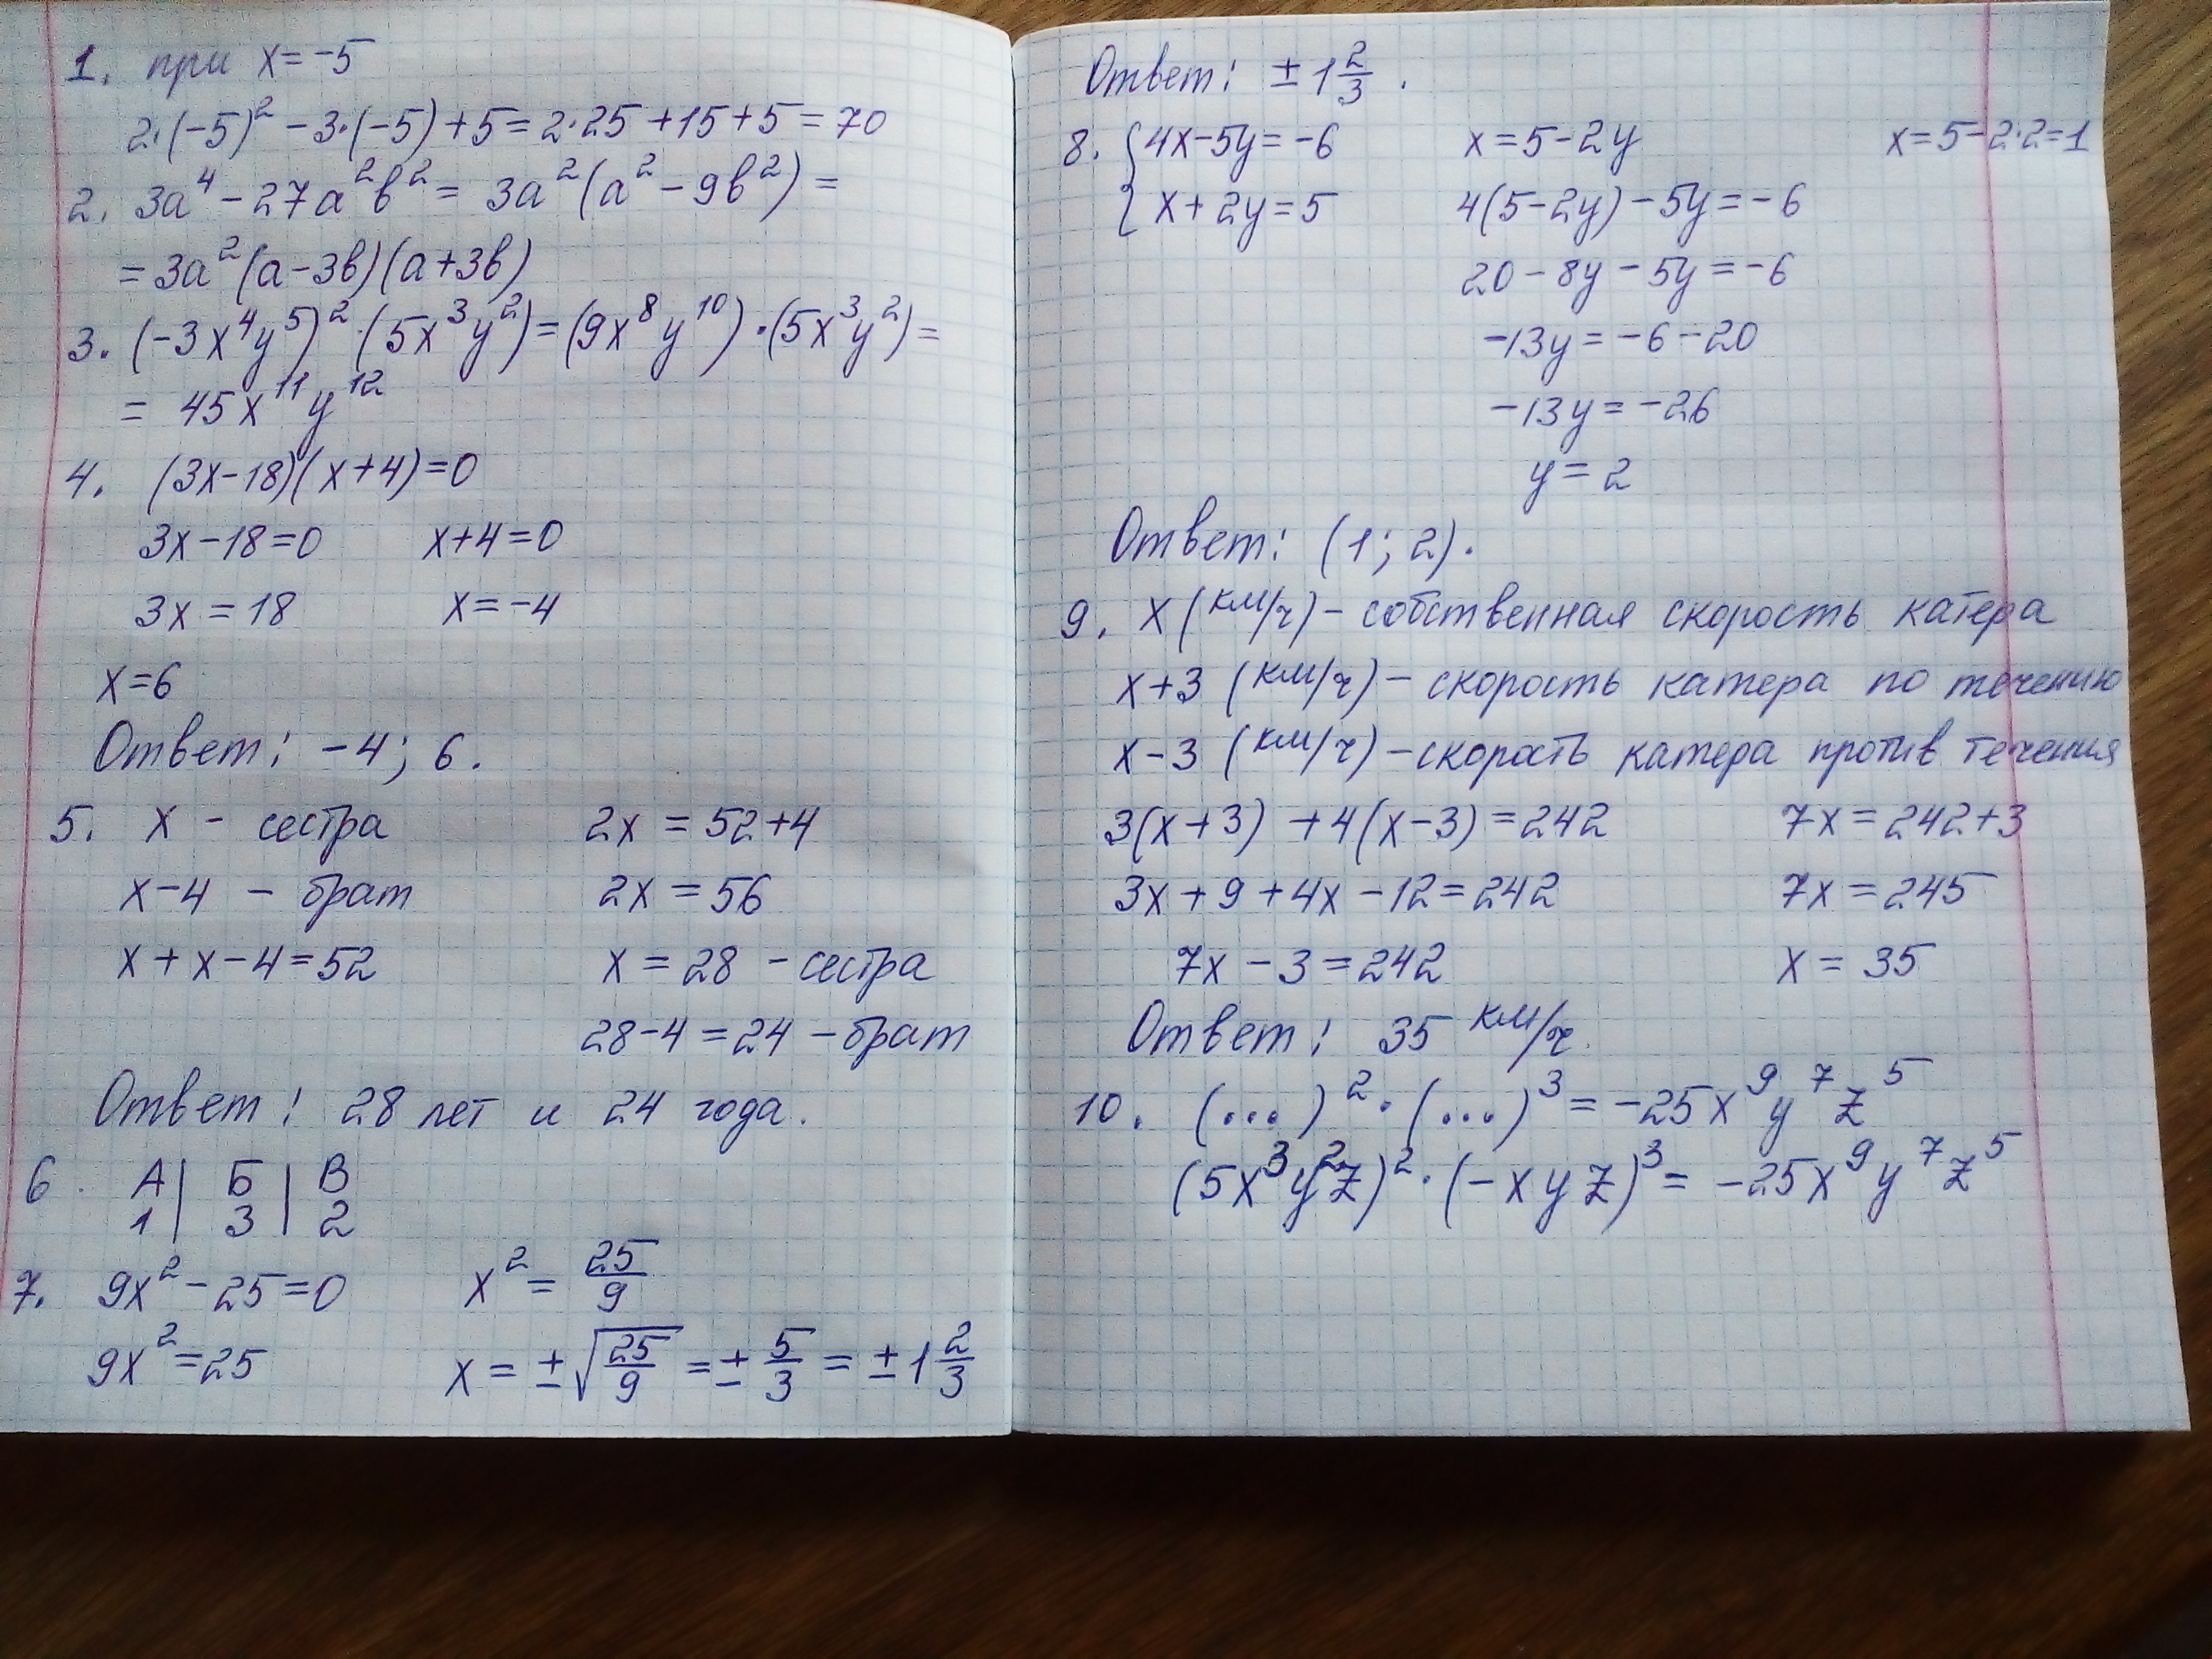 1. при x = -5
2·(-5)² - 3·(-5) + 5 = 2·25 + 15 + 5 = 70
2. 3a⁴ - 27a²b² = 3a²(a² - 9b²) =
= 3a²(a - 3b)(a + 3b)
3. (-3x⁴y⁵)²·(5x³y²) = (9x⁸y¹⁰)·(5x³y²) =
= 45x¹¹y¹²
4. (3x - 18)(x + 4) = 0
3x - 18 = 0 x + 4 = 0
3x = 18 x = -4
x = 6
Ответ: -4; 6.
5. x - сестра 2x = 52 + 4
x - 4 - брат 2x = 56
x + x - 4 = 52 x = 28 - сестра
28 - 4 = 24 - брат
Ответ: 28 лет и 24 года.
6. А | Б | В
1 | 3 | 2
7. 9x² - 25 = 0 x² = 25/9
9x² = 25 x = ±√(25/9) = ± 5/3 = ± 1 2/3
Ответ: ± 1 2/3.
8. { 4x - 5y = -6 x = 5 - 2y x = 5 - 2·2 = 1
x + 2y = 5 4(5 - 2y) - 5y = -6
20 - 8y - 5y = -6
-13y = -6 - 20
-13y = -26
y = 2
Ответ: (1; 2).
9. x (км/ч) - собственная скорость катера
x + 3 (км/ч) - скорость катера по течению
x - 3 (км/ч) - скорость катера против течения
3(x + 3) + 4(x - 3) = 242 7x = 242 + 3
3x + 9 + 4x - 12 = 242 7x = 245
7x - 3 = 242 x = 35
Ответ: 35 км/ч.
10. (...)²·(...)³ = -25x⁹y⁷z⁵
(5x³y²z)²·(-xyz)³ = -25x⁹y⁷z⁵